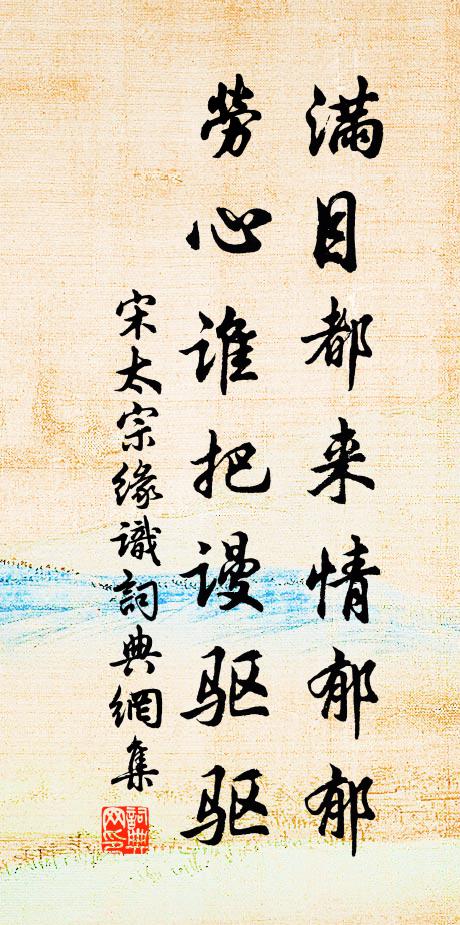 满目都来情郁郁
劳心谁把谩驱驱
宋太宗缘識詞典網集
詞典网印